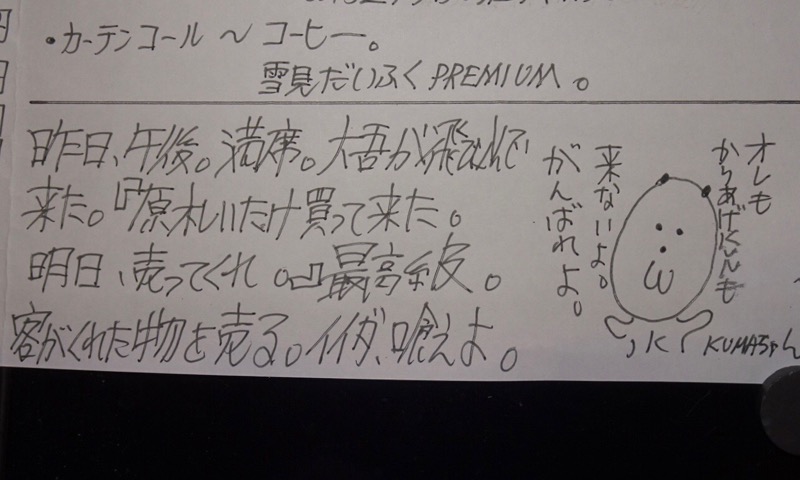 ・カーテンコール～コーヒー。
雪見だいふくPREMIUM。
昨日、午後。満席。大吾が飛んで
来た。『原木しいたけ買って来た。
明日、売ってくれ。』最高級。
客がくれた物を売る。イイダ、喰えよ。
オレも
かりあげくんも
来ないよ。
がんばれよ。
K
KUMAちゃん